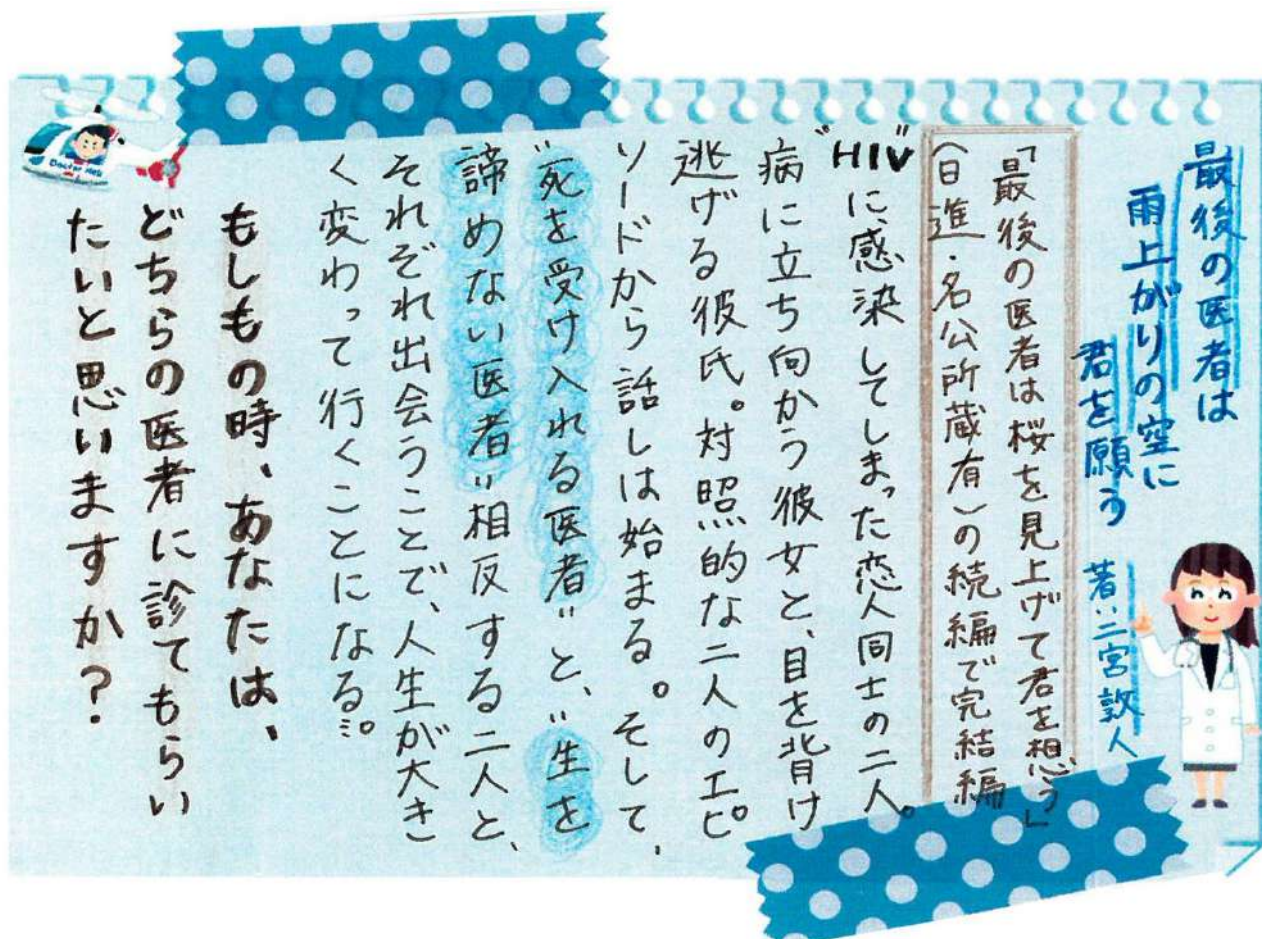 最後の医者は
雨上がりの空に
君を願う
著:二宮敦人
「最後の医者は桜を見上げて君を想う」
(日進・名公所蔵有)の続編で完結編
"HIV"に感染してしまった恋人同士の二人。
病に立ち向かう彼女と、目を背け
逃げる彼氏。対照的な二人のエピ
ソードから話しは始まる。そして、
"死を受け入れる医者"と、"生を
諦めない医者"相反する二人と、
それぞれ出会うことで、人生が大き
く変わって行くことになる…。
もしもの時、あなたは、
どちらの医者に診てもらい
たいと思いますか?